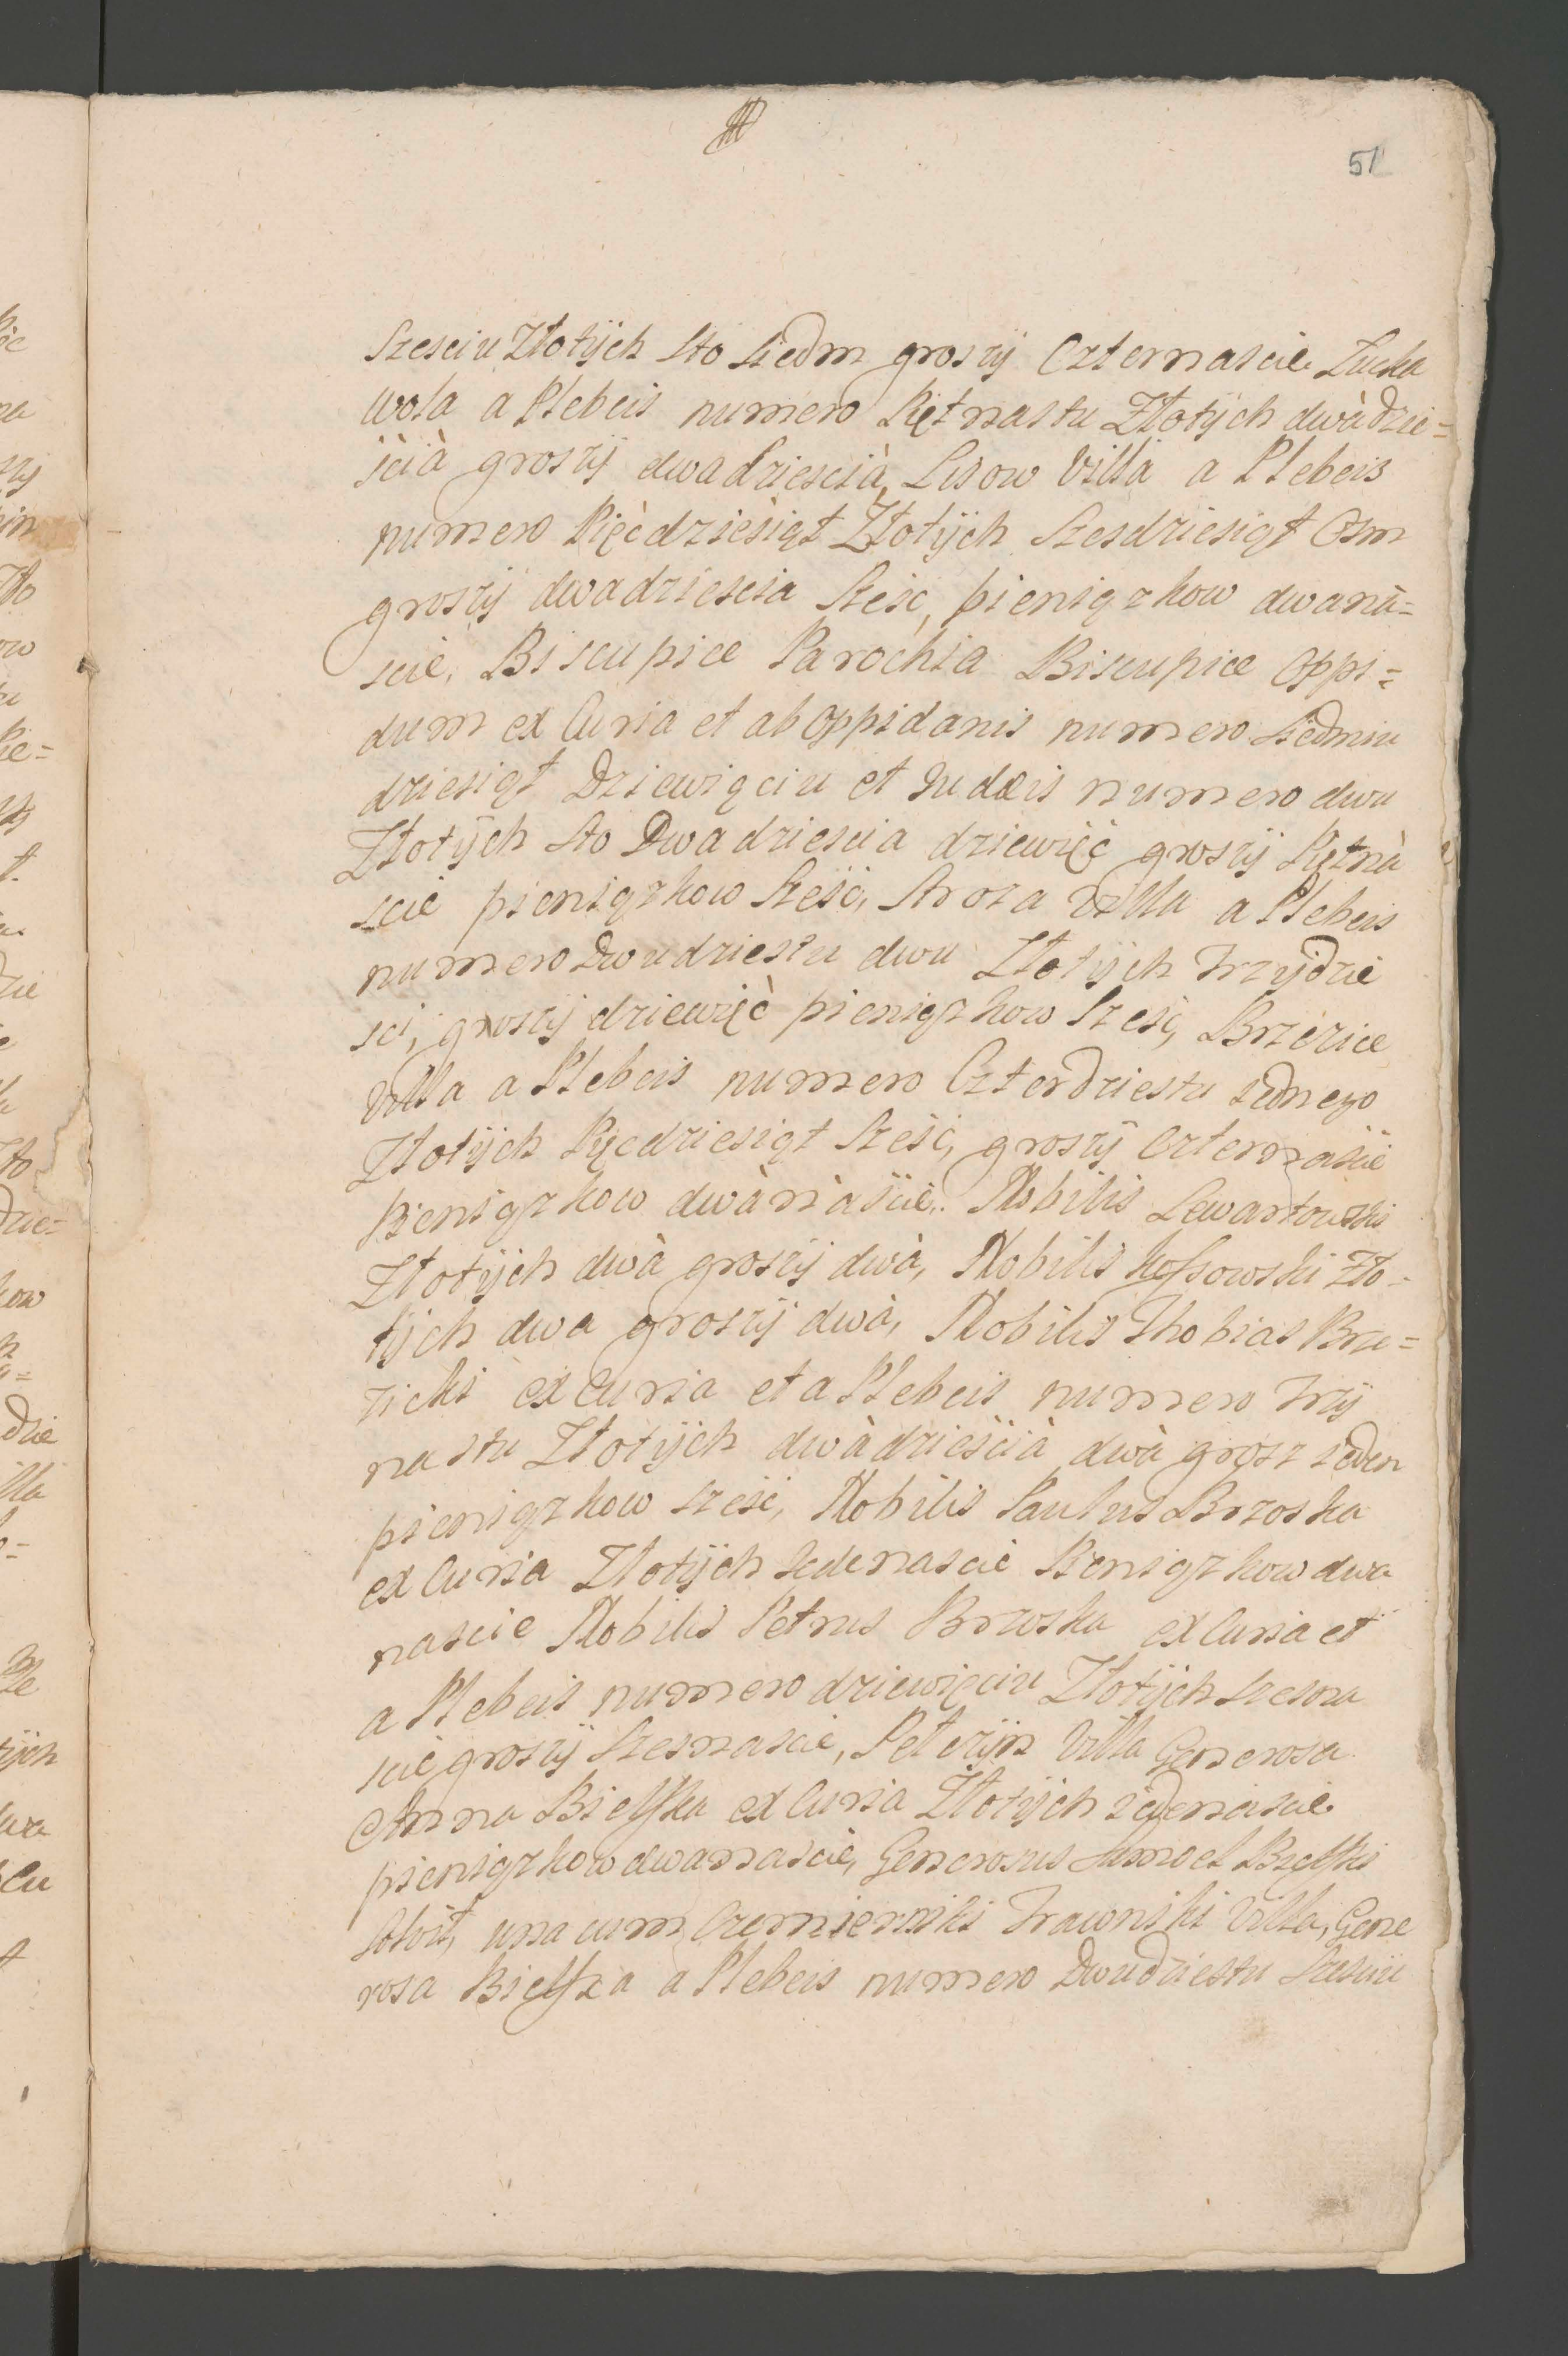 51
Szesciu Złotÿch Sto Siedm groszÿ Czternascie Łucka
wola a Plebeis numero Piętnastu Złotÿch dwàdzie=
ścià groszÿ dwadziescià, Lisow Villa a Plebeis
numero Pięcdziesiąt Złotÿch Szesdziesiąt Osm
groszÿ dwadziescia Szesc, pieniązkow dwanà=
scie, Biscupice Parochia Biscupice Oppi=
dum ex Curia et ab Oppidanis numero Siedmiu
dziesiąt Dziewiąciu et Iudæis numero dwu
Złotÿch Sto Dwadziescia dziewięć groszÿ Piętnà
scie pieniązkow Szesc, Stroza Villa a Plebeis
numero Dwudziestu dwu Złotÿch Trzydzie
sci, groszÿ dziewięć pieniązkow Szesc, Brzezice
Villa a Plebeis numero Czterdziestu iednego
Złotÿch Pięcdziesiąt Szesc, groszÿ Czternascie
Pieniązkow dwànàscie. Nobilis Lewartowski
Złotÿch dwà groszÿ dwà, Nobilis Kossowski Zło=
tÿch dwa groszÿ dwà, Nobilis Thobias Brze=
zicki ex Curia et a Plebeis numero Trzÿ
nastu Złotÿch dwàdzieścià dwà grosz ieden
pieniązkow szesc, Nobilis Paulus Brzoska
ex Curia Złotÿch Iedenascie Pieniązkow dwa
nascie Nobilis Petrus Brzoska ex Curia et
a Plebeis numero dziewięciu Złotÿch szesna
scie groszÿ Szesnascie, Pełczÿn Villa Generosa
Anna Bielska ex Curia Złotÿch iedenascie
pieniązkow dwanascie, Generosus Samoel Bielski
solvit, una cum Czemierniki Trawniki Villa, Gene
rosa Bielska a Plebeis numero Dwudziestu Szesciu